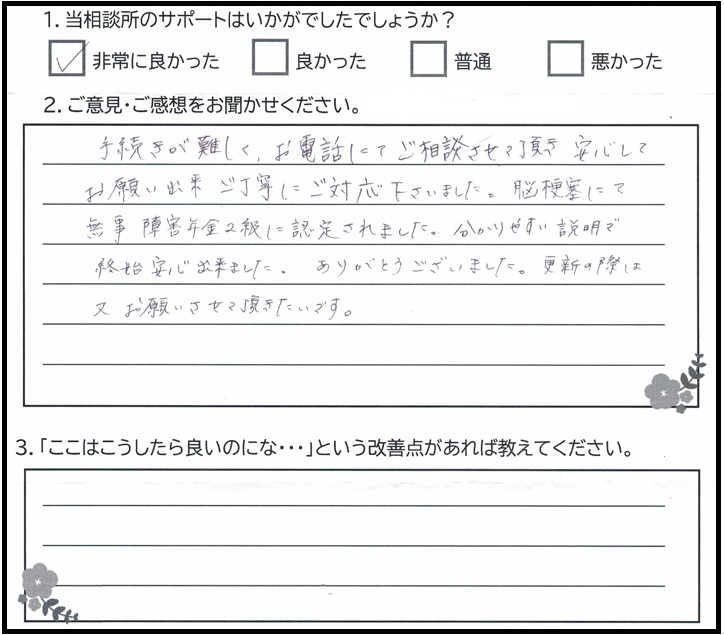 1. 当相談所のサポートはいかがでしたでしょうか？
非常に良かった 良かった 普通 悪かった
2. ご意見・ご感想をお聞かせください。
手続きが難しく、お電話にてご相談させて頂き 安心して
お願い出来 ご丁寧にご対応下さいました。脳梗塞にて
無事 障害年金2級に認定されました。分かりやすい説明で
終始安心出来ました。 ありがとうございました。更新の際は
又お願いさせて頂きたいです。
3.「ここはこうしたら良いのにな・・・」という改善点があれば教えてください。